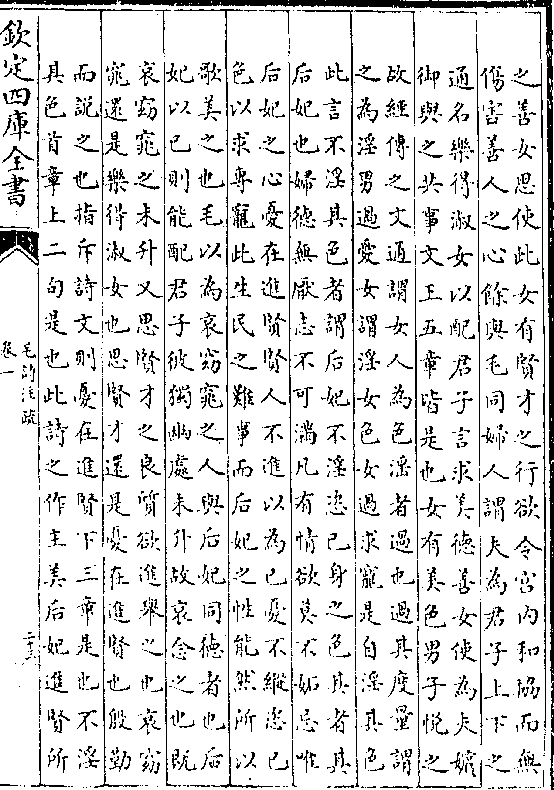 之善女思使此女有賢才之行欲令宫内和協而無
傷害善人之心餘與毛同婦人謂夫為君子上下之
通名樂得淑女以配君子言求美德善女使為夫嬪
御與之共事文王五章皆是也女有美色男子悦之
故經傳之文通謂女人為色淫者過也過其度量謂
之為淫男過愛女謂淫女色女過求寵是自淫其色
此言不淫其色者謂后妃不淫恣已身之色其者其
后妃也婦德無厭志不可滿凡有情欲莫不妬忌唯
后妃之心憂在進賢賢人不進以為已憂不縱恣已
色以求專寵此生民之難事而后妃之性能然所以
歌美之也毛以為哀窈窕之人與后妃同德者也后
妃以已則能配君子彼獨幽處未升故哀念之也既
哀窈窕之未升又思賢才之良質欲進舉之也哀窈
窕還是樂得淑女也思賢才還是憂在進賢也殷勤
而說之也指斥詩文則憂在進賢下三章是也不淫
其色首章上二句是也此詩之作主美后妃進賢所
欽定四庫全書
毛詩注疏
卷一
二十六